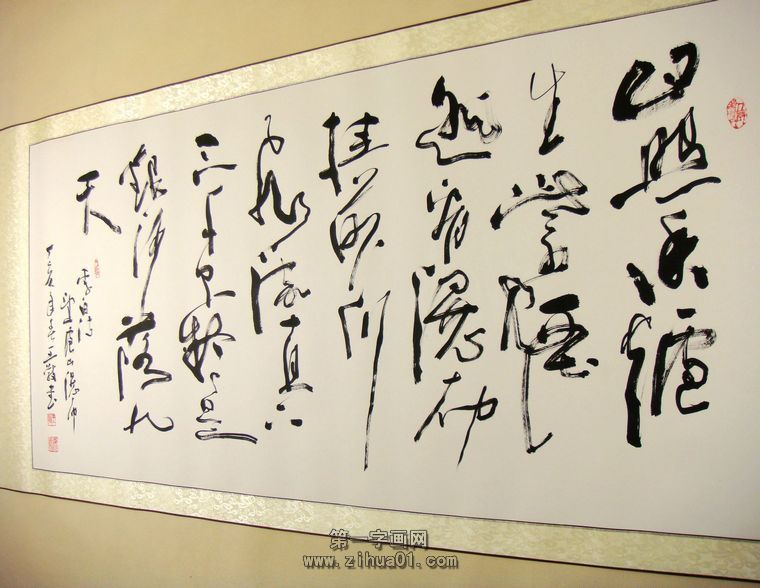 日照香爐
生紫煙
遥看瀑布
挂前川
飛流直下
三千尺疑是
銀河落九
天
李白诗
望庐山瀑布
丁亥年春王
第一字画网
www.zihua01.com